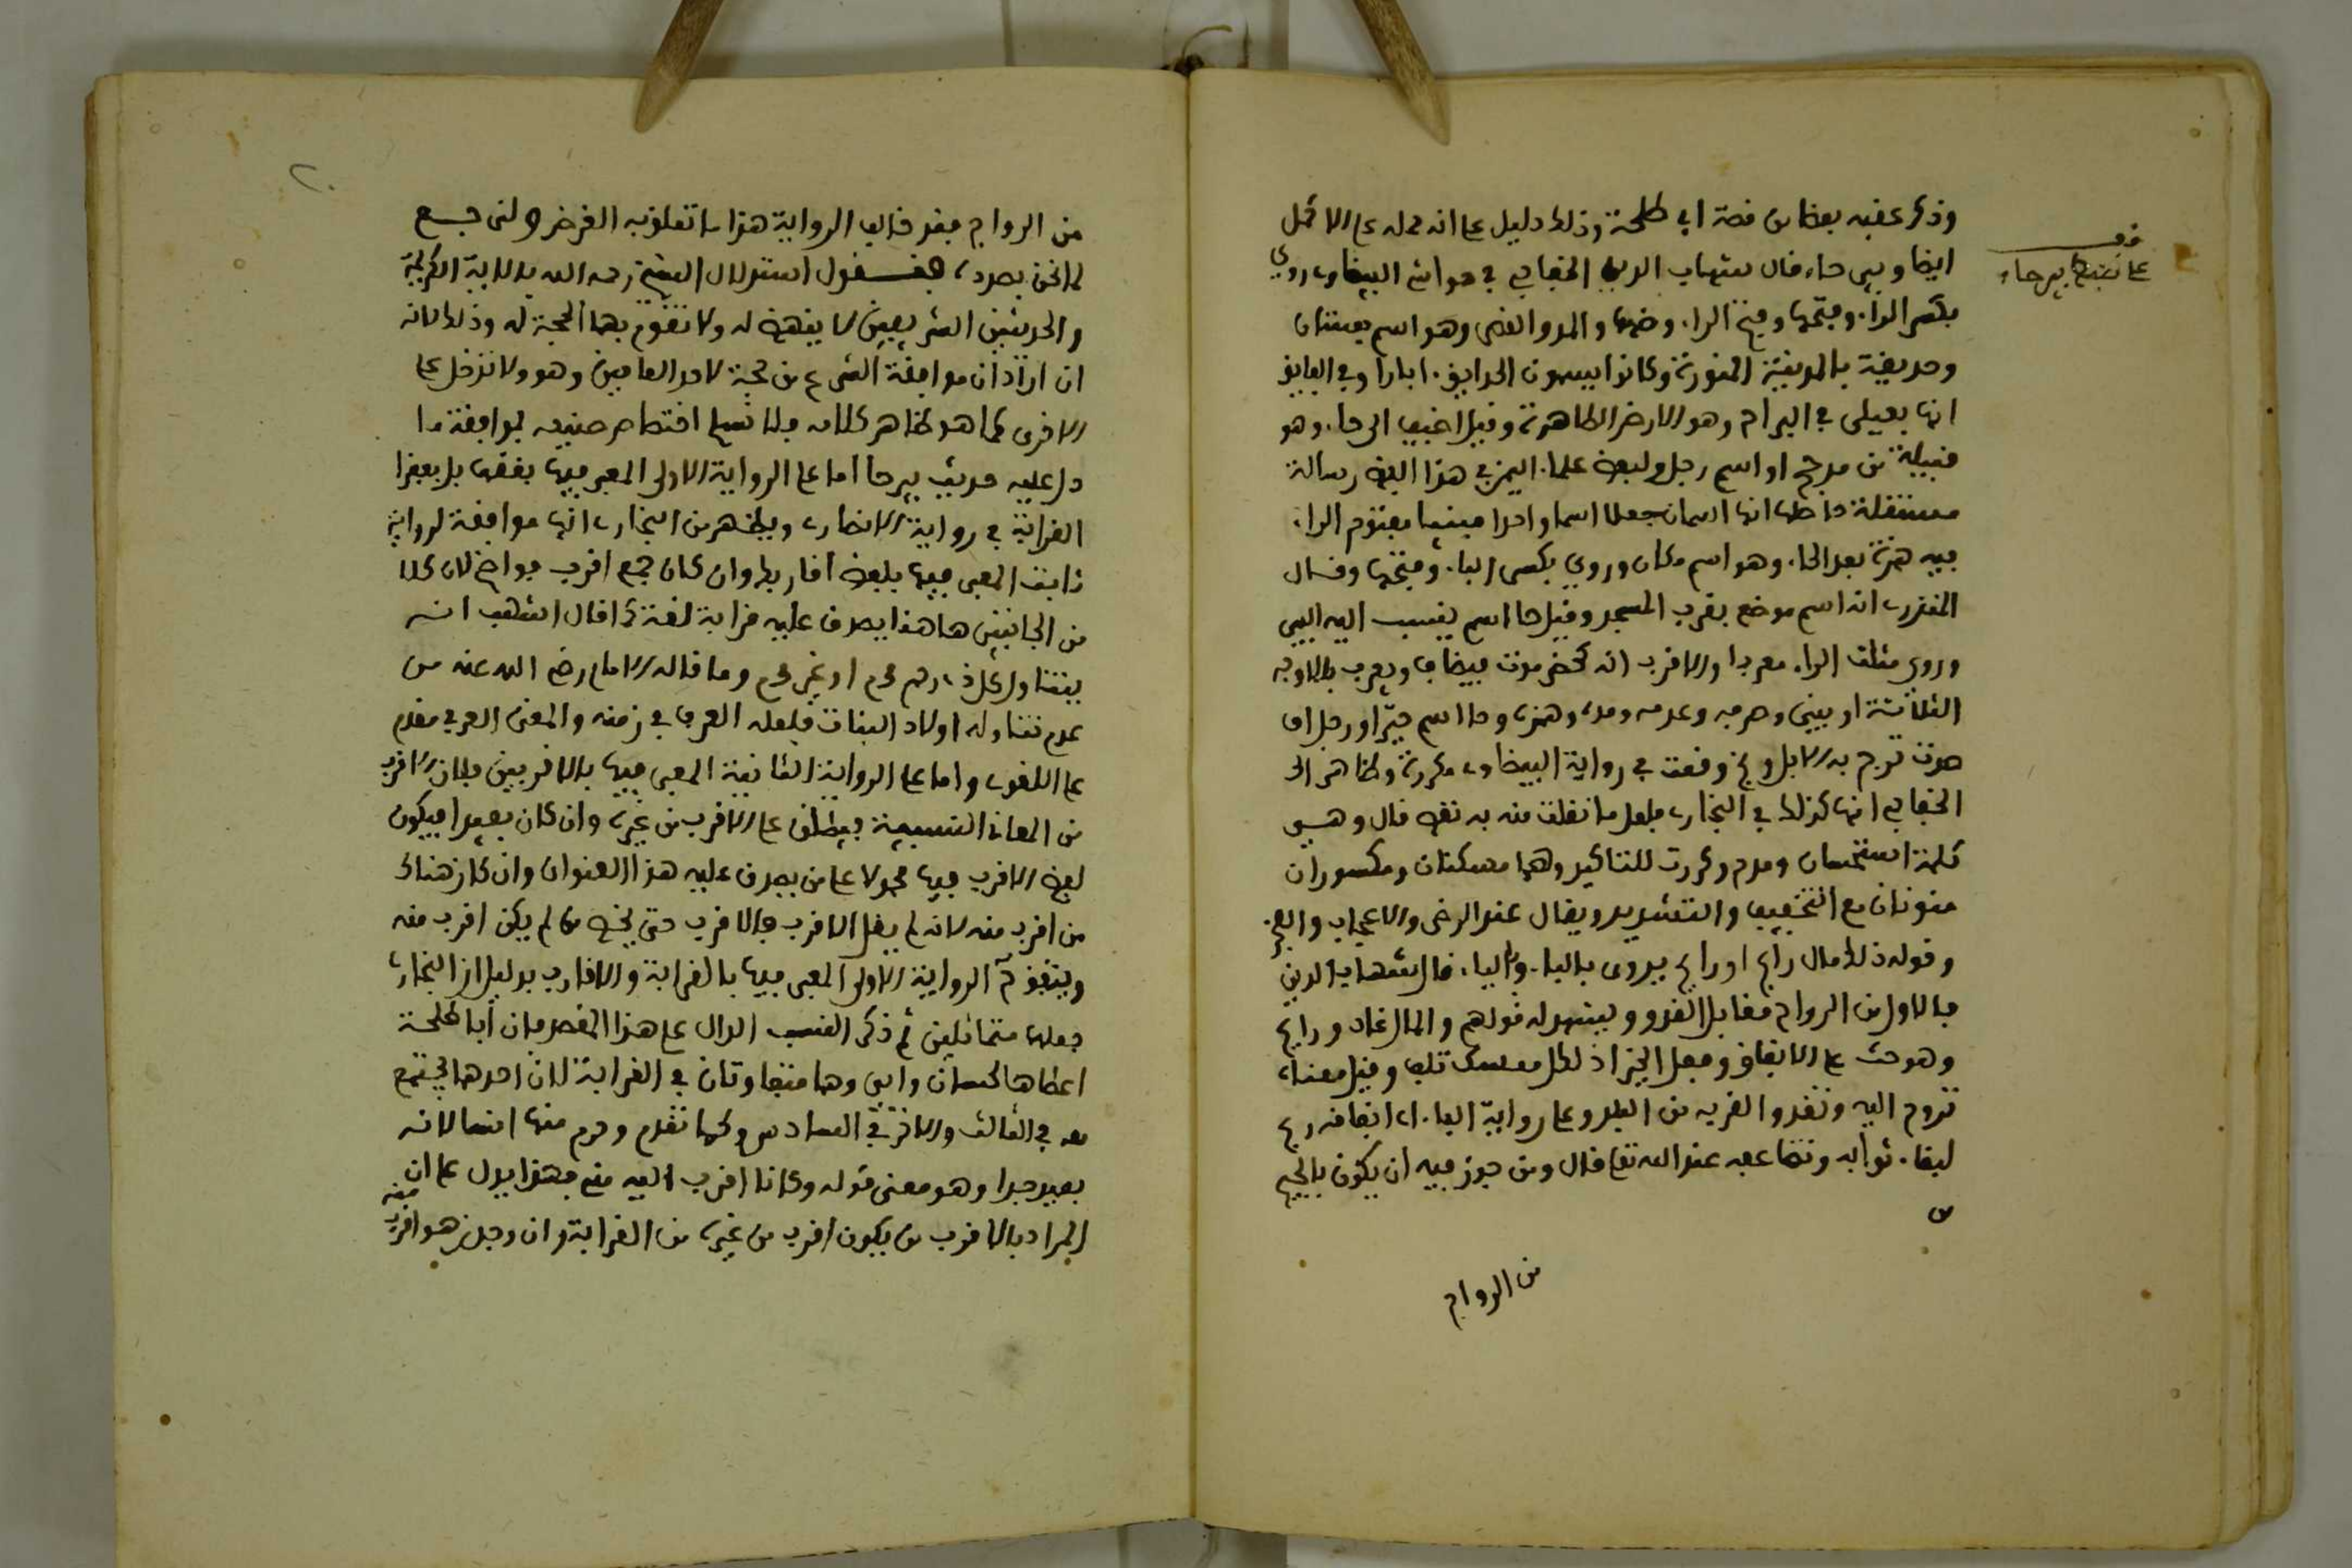 وذكر عقبه بعضا من قصة ابي طلحة وذلك دليل على انه حمله على الاكمل
ايضا وبيرحاء قال شهاب الدين الخفاجي في حواشي البيضاوي روي
بكسر الراء وفتحها وفتح الراء وضمها والمد والقصر وهو اسم بستان
وحديقة بالمدينة المنورة وكانوا يسمون الحدايق ابارا وفي الفايق
انها فيعلى في البراح وهو الارض الظاهرة وقيل اضيف الى حاء وهو
قبيلة من مدحج او اسم رجل ولبعض علماء اليمن في هذا اللفظ رسالة
مستقلة حاصلها انها اسمان جعلا اسما واحدا مبنيا مفتوح الراء
فيه همزة بعد الحاء وهو اسم مكان وروي بكسر الباء وفتحها وقال
المنذري انه اسم موضع بقرب المسجد وقيل حا اسم ينسب اليه البير
وروي مثلث الراء معربا والاقرب انه كحضرموت فيضاف ويعرب بالاوجه
الثلاثة او يبنى وصرفه وعدمه ومده وهمزه وحا اسم حيّ او رجل او
صوت تزجر به الابل وبخ وقعت في رواية البيضاوي مكررة وظاهر
الخفاجي انها كذلك في البخاري فلعل ما نقلت منه به نقص قال وهي
كلمة استحسان ومدح وكررت للتاكيد وهما مسكنتان ومكسوران
منونان مع التخفيف والتشديد ويقال عند الرضى والاعجاب والفخر
وقوله ذلك مال رابح او رايح يروى بالباء والياء قال شهاب الدين
فالاول من الرواح مقابل الغدو ويشهد له قولهم والمال غاد ورايح
وهو حث على الانفاق وفعل الخير اذ لكل ممسك تلف وقيل معناه
تروح اليه وتغدو القربه من البلد وعلى رواية الباء اي انفاقه ربح
لبقاء ثوابه وتضاعفه عند الله تعالى قال ومن جوز فيه ان يكون بالجيم
من الرواج
على ضبط بيرحاء
من الرواج فقد خالف الرواية هذا ما تعلق به الغرض ولنرجع
لما نحن بصدده فنقول استدلال الشيخ رحمه الله بالاية الكريمة
والحديثين الشريفين لا ينهض له ولا تقوم بهما الحجة له وذلك لانه
ان اراد ان موافقة الشرع من حجة لاحد العامين وهو ولا تدخل على
الاخرى كما هو ظاهر كلامه فلا نسلم اختصاص صنيعه بموافقة ما
دل عليه حديث بيرحا اما على الرواية الاولى المعبر فيها بفقرا
القرابة في رواية الانصاري ويظهر من البخاري انها موافقة لرواية
ثابت المعبر فيها بلفظ اقاربك وان كان جمع اقرب فواضح لان كلا
من الجانبين هاهنا يصدق عليه قرابة لغة كما قال اشهب انه
يتناول كل ذي رحم محرم او غير محرم وما قاله الامام رضي الله عنه من
عدم تناوله اولاد البنات فلعله العرف في زمنه والمعنى العرفي مقدم
على اللغوي واما على الرواية الثانية المعبر فيها بالاقربين فلان الاقرب
من المعاني النسبية فيطلق على الاقرب من غيره وان كان بعيدا فيكون
لفظ الاقرب فيها محمولا على من يصدق عليه هذا العنوان وان كان هناك
من اقرب منه لانه لم يقل الاقرب فالاقرب حتى يخص من لم يكن اقرب منه
ويتقوم الرواية الاولى المعبر فيها بالقرابة والاقارب بدليل ان البخاري
جعلها متماثلين ثم ذكر النسب الدال على هذا المقصد فان أبا طلحة
اعطاها لحسان وابي وهما متفاوتان في القرابة لان احدهما يجتمع
معه في الثالث والاخر في السادس كما تقدم وحرم منها انسا لانه
بعيد جدا وهو معنى قوله وكانا اقرب اليه مني فهذا يدل على ان
المراد بالاقرب من يكون اقرب من غيره من القرابة وان وجد من هو اقرب منه